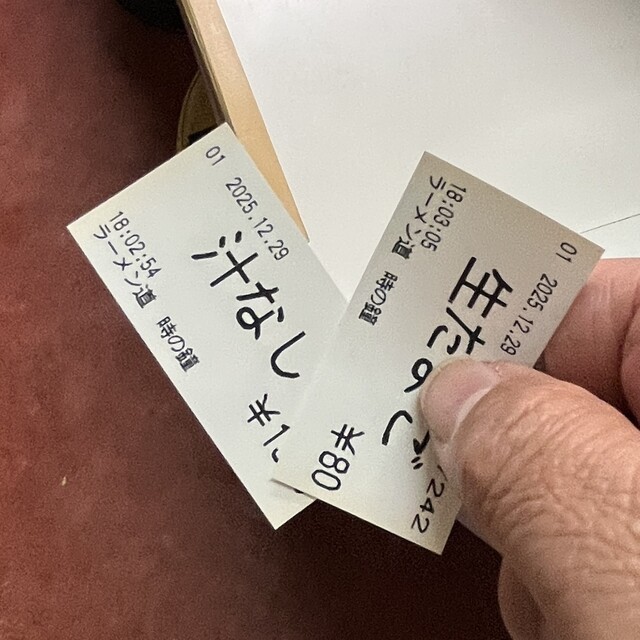 01 2025.12.29
汁なし
¥1
18:02:54
ラーメン道 時の鐘
01 2025.12.29
生たまご
¥80
242
18:03:05
ラーメン道 時の鐘